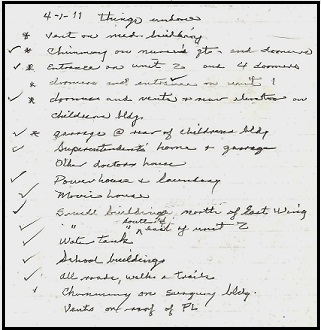 4-1-11 things undone
* Vent on med building
✓ * Chimney on nurses qt. and doomers
✓ * Entrance on unit 2 and 4 doomers
* doomers and entrances on unit 1
✓ * doomers and vents + new elevator on
childrens bldg
✓ * garage @ rear of childrens bldg
✓ Superintendents home & garage
Other doctors house
✓ Powerhouse & laundry
✓ Movie house
✓ Small buildings north of East Wing
✓ " " south & east of unit 2
✓ Water tank
✓ School buildings
✓ All roads, walks & trails
✓ Chimney on surgery bldg.
Vents on roof of PL